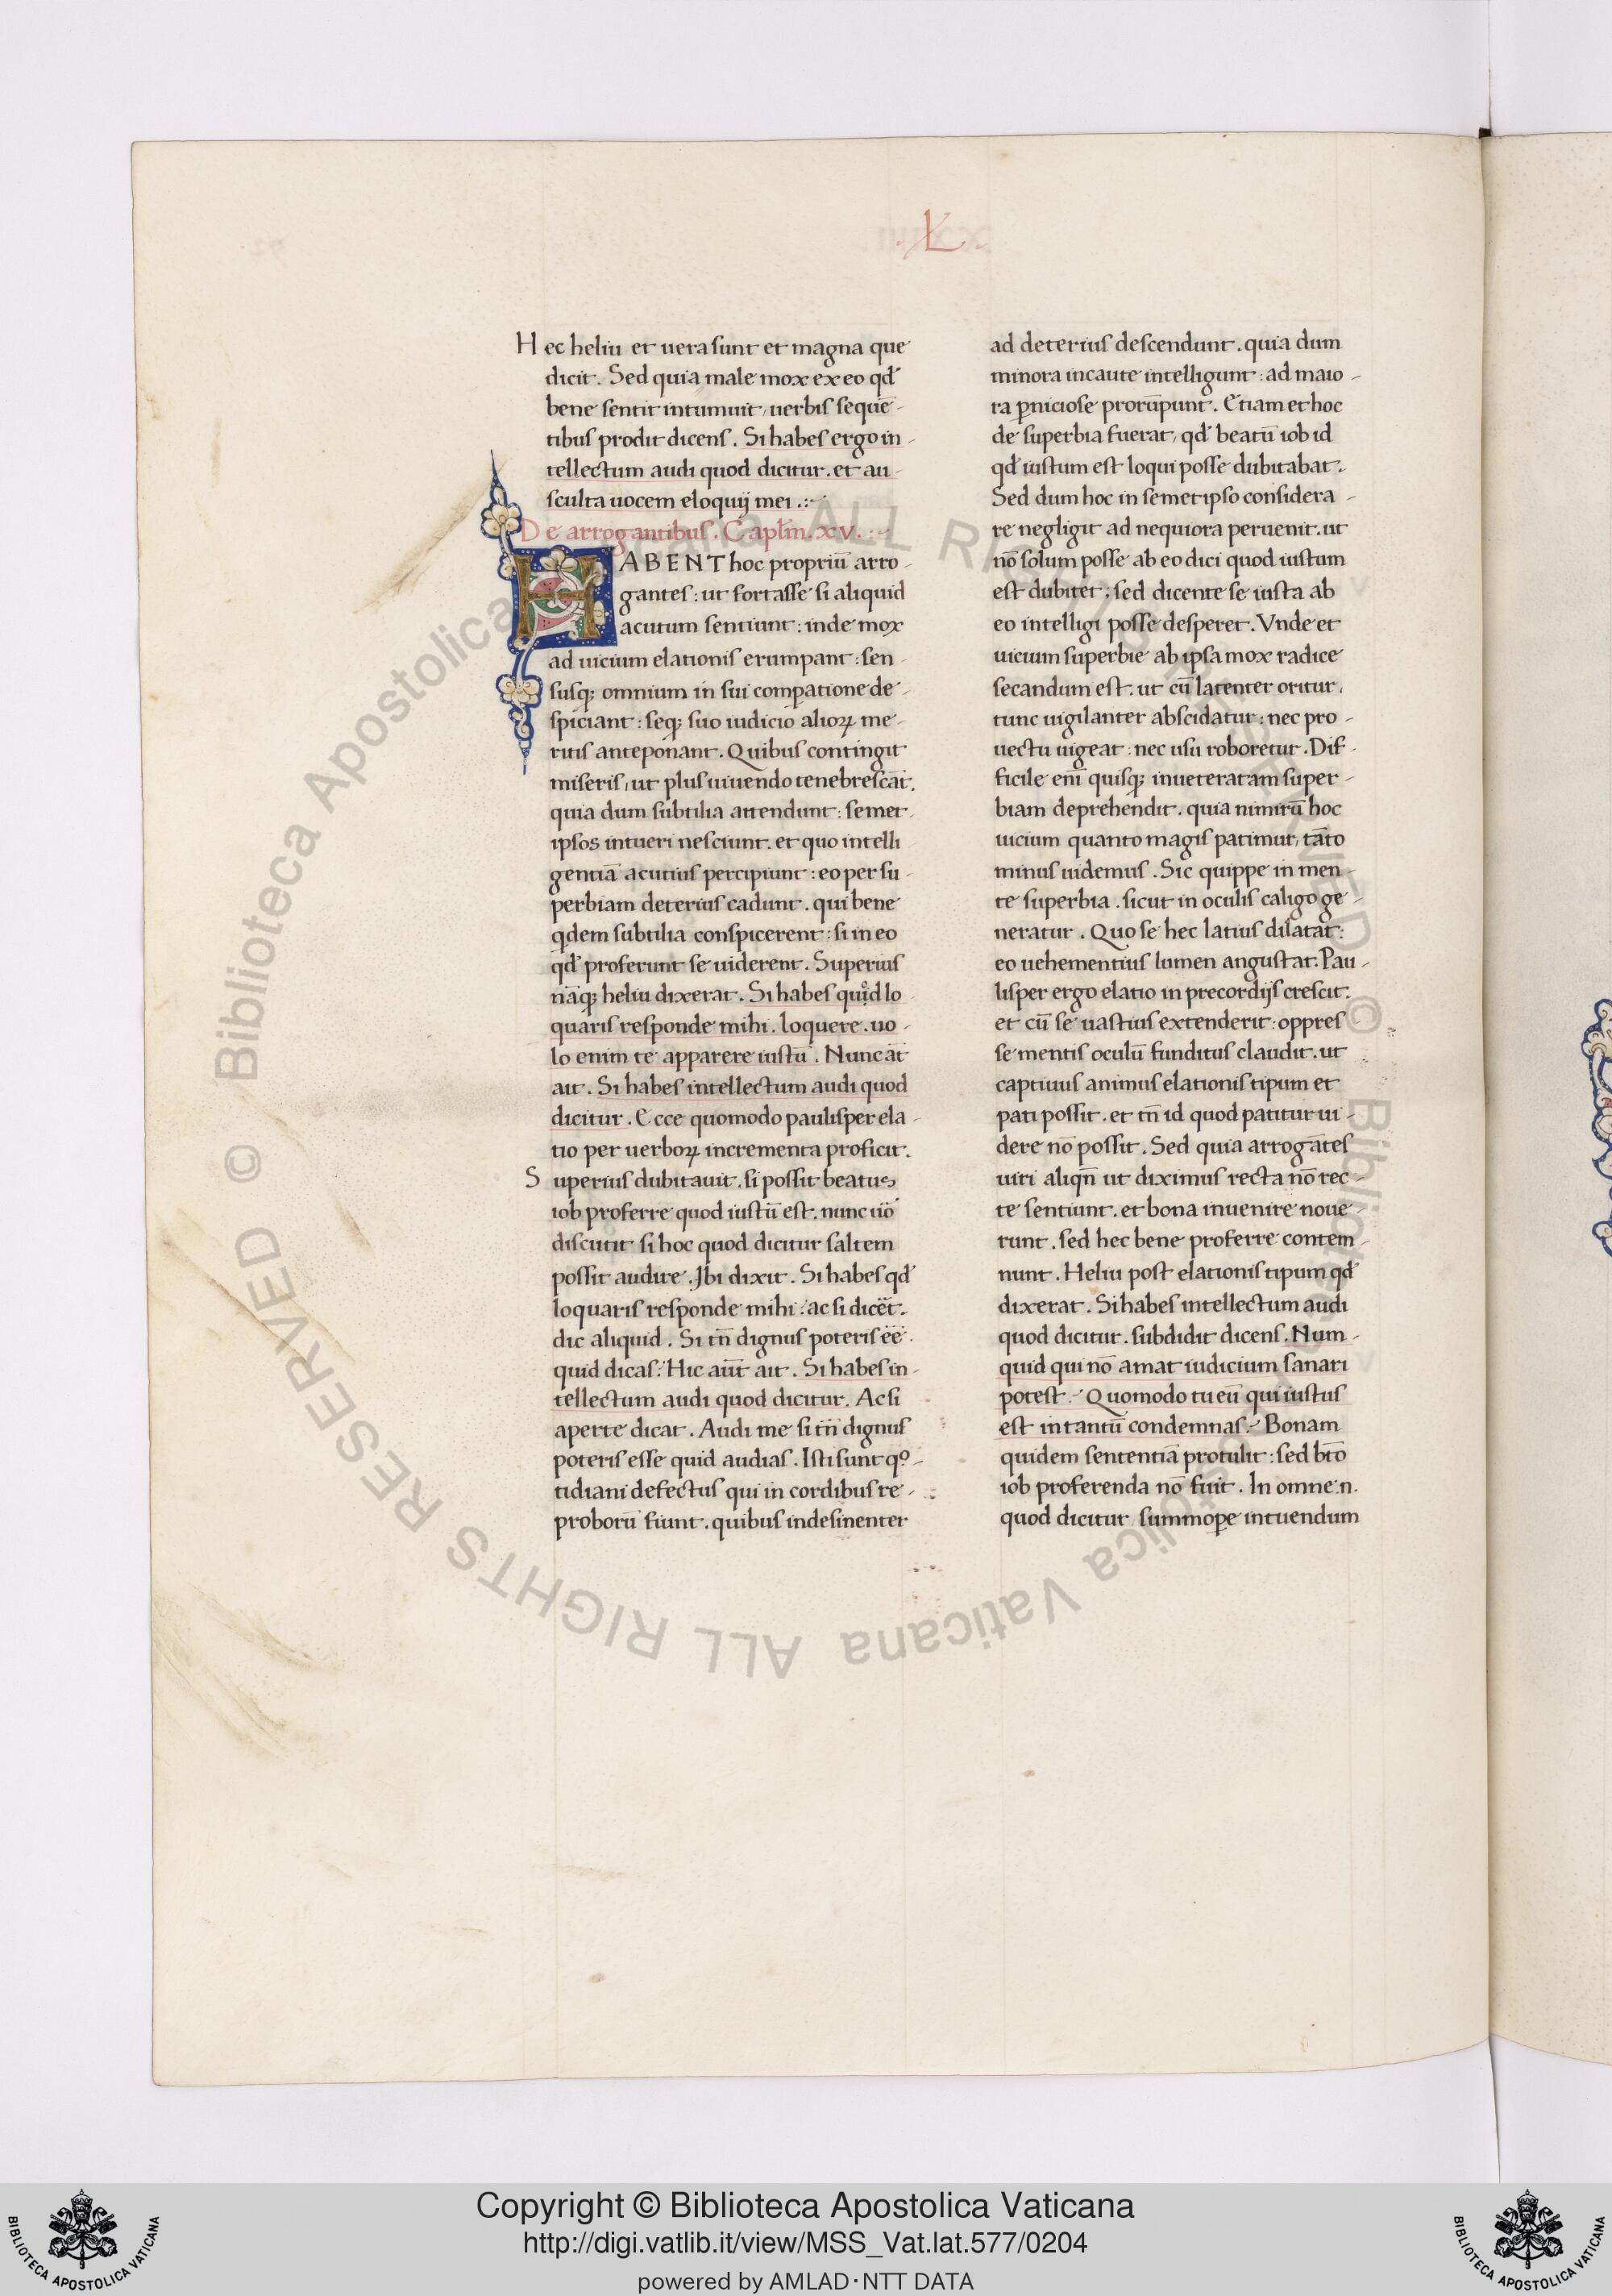 .L.
Hec heliu et uera sunt et magna que
dicit. Sed quia male mox ex eo qđ
bene sentit intumuit, uerbis sequē-
tibus prodit dicens. Si habes ergo in-
tellectum audi quod dicitur. et au-
sculta uocem eloquij mei.:-
De arrogantibus. Capłm. xv.
HABENT hoc propriū arro-
gantes: ut fortasse si aliquid
acutum sentiunt: inde mox
ad uicium elationis erumpant: sen-
susq; omnium in sui compatione de-
spiciant: seq; suo iudicio alioꝝ me-
ritis anteponant. Quibus contingit
miseris, ut plus uiuendo tenebrescāt.
quia dum subtilia attendunt: semet
ipsos intueri nesciunt. et quo intelli
gentiā acutius percipiunt: eo per su-
perbiam deterius cadunt. qui bene
qdem subtilia conspicerent: si in eo
qđ proferunt se uiderent. Superius
nāq; heliu dixerat. Si habes quid lo
quaris responde mihi. loquere. uo-
lo enim te apparere iustū. Nunc āt
ait. Si habes intellectum audi quod
dicitur. Ecce quomodo paulisper ela-
tio per uerboꝝ incrementa proficit.
Superius dubitauit. si possit beatus
iob proferre quod iustū est. nunc ūo
discutit si hoc quod dicitur saltem
possit audire. Ibi dixit. Si habes qđ
loquaris responde mihi: ac si dicēt.
dic aliquid. Si tn̄ dignus poteris ēē
quid dicas. Hic aūt ait. Si habes in-
tellectum audi quod dicitur. Ac si
aperte dicat. Audi me si tn̄ dignus
poteris esse quid audias. Isti sunt qº-
tidiani defectus qui in cordibus re-
proborū fiunt. quibus indesinenter
ad deterius descendunt. quia dum
minora incaute intelligunt: ad maio-
ra ꝑniciose prorūpunt. Etiam et hoc
de superbia fuerat, qđ beatū iob id
qđ iustum est loqui posse dubitabat.
Sed dum hoc in semet ipso considera-
re negligit ad nequiora peruenit. ut
nō solum posse ab eo dici quod iustum
est dubitet; sed dicente se iusta ab
eo intelligi posse desperet. Vnde et
uicium superbie ab ipsa mox radice
secandum est. ut cū latenter oritur,
tunc uigilanter abscidatur: nec pro-
uectu uigeat: nec usu roboretur. Dif-
ficile eni̅ quisq; inueteratam super-
biam deprehendit. quia nimirū hoc
uicium quanto magis patimur, tāto
minus uidemus. Sic quippe in men-
te superbia. sicut in oculis caligo ge-
neratur. Quo se hec latius dilatat:
eo uehementius lumen angustat. Pau-
lisper ergo elatio in precordijs crescit.
et cū se uastius extenderit: oppres
se mentis oculū funditus claudit. ut
captiuus animus elationis tipum et
pati possit. et tn̄ id quod patitur ui-
dere nō possit. Sed quia arrogātes
uiri aliqn̄ ut diximus recta nō rec-
te sentiunt. et bona inuenire noue-
runt. sed hec bene proferre contem-
nunt. Heliu post elationis tipum qđ
dixerat. Si habes intellectum audi
quod dicitur. subdidit dicens. Num-
quid qui nō amat iudicium sanari
potest. Quomodo tu eū qui iustus
est in tantū condemnas. Bonam
quidem sententiā protulit: sed btō
iob proferenda nō fuit. In omne.n.
quod dicitur summoꝑe intuendum
© Biblioteca Apostolica Vaticana ALL RIGHTS RESERVED © Biblioteca Apostolica Vaticana ALL RIGHTS RESERVED
Copyright © Biblioteca Apostolica Vaticana
http://digi.vatlib.it/view/MSS_Vat.lat.577/0204
powered by AMLAD·NTT DATA
BIBLIOTECA APOSTOLICA VATICANA
BIBLIOTECA APOSTOLICA VATICANA